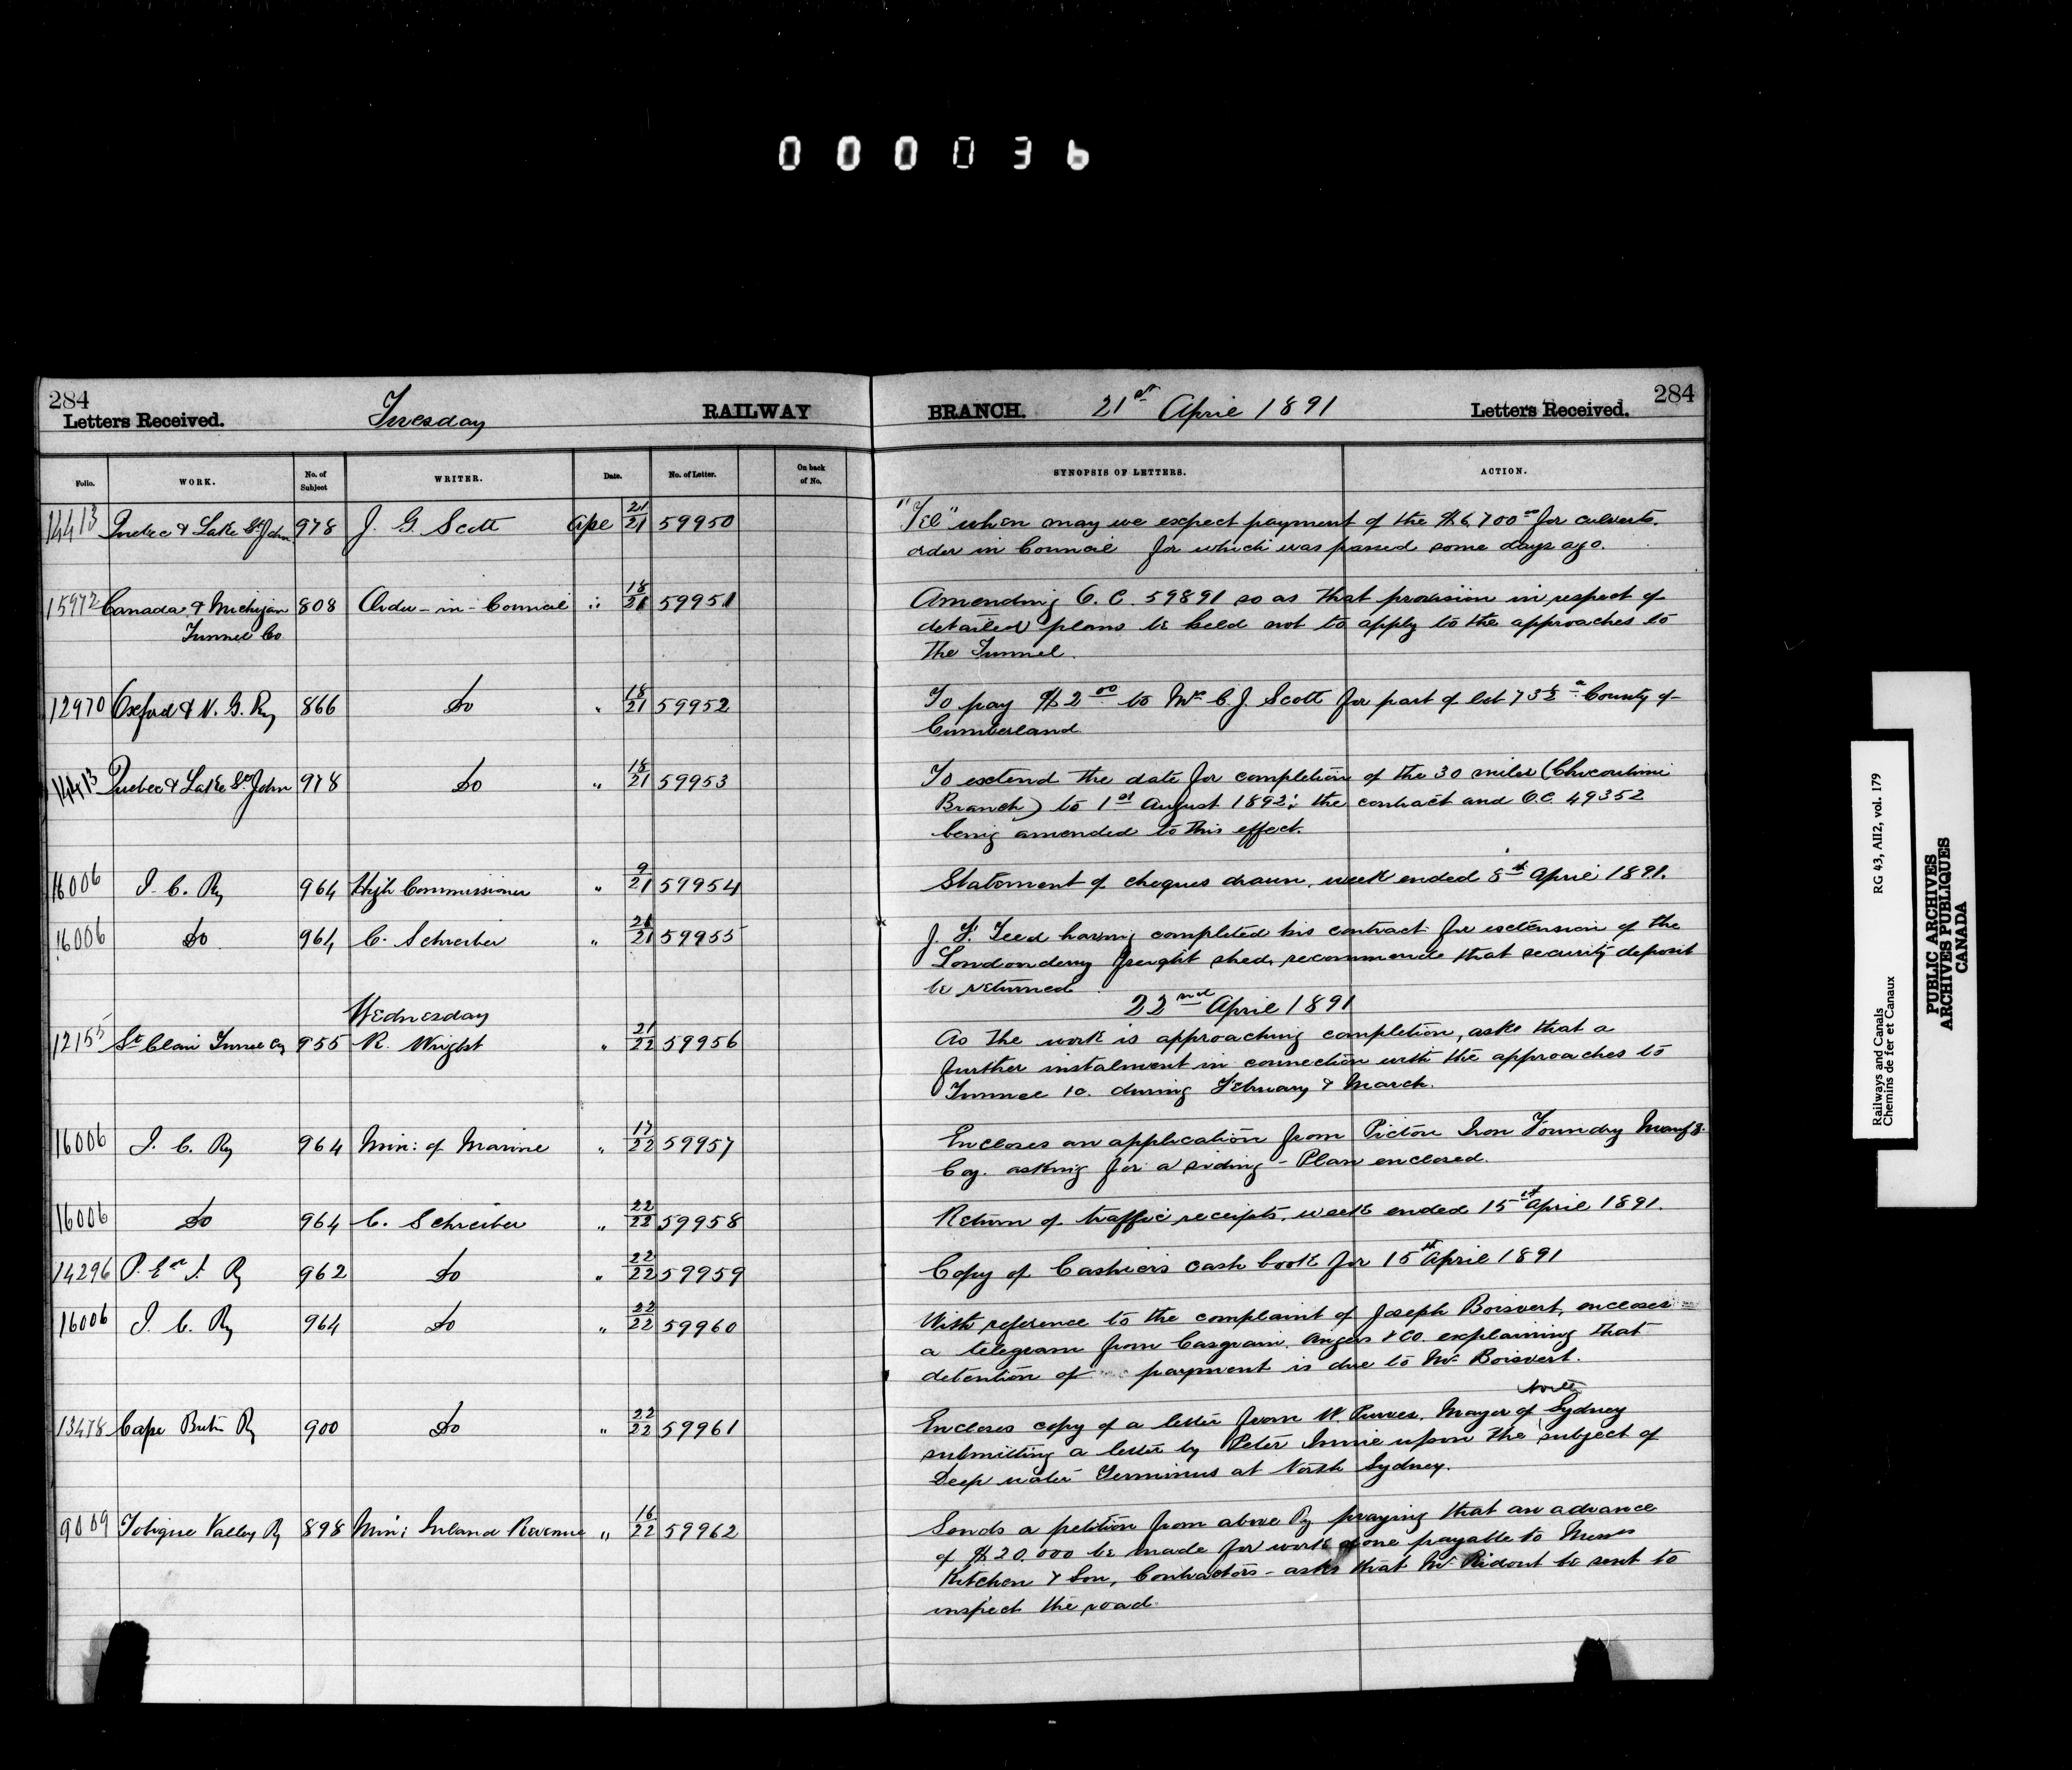 000036
284 284
Letters Received. Tuesday RAILWAY BRANCH. 21st April 1891 Letters Received.
Folio. WORK. No. of Subject WRITER. Date. No. of Letter. On back of No. SYNOPSIS OF LETTERS. ACTION.
14413 Quebec & Lake St John 978 J. G. Scott Ape 21/21 59950 "Tel" when may we expect payment of the $6,700 00 for culverts.
order in Council for which was passed some days ago.
15972 Canada & Michigan 808 Order-in-Council " 18/21 59951 Amending O.C. 59891 so as that provision in respect of
Tunnel Co detailed plans be held not to apply to the approaches to
The Tunnel.
12970 Oxford & N. G. Ry 866 Do " 18/21 59952 To pay $2 00 to C. J. Scott for part of lot County of
Cumberland
14413 Quebec & Lake St John 978 Do " 18/21 59953 To extend the date for completion of the 30 miles (Chicoutimi
Branch) to 1st August 1892; the contract and O.C. 49352
being amended to this effect.
16006 I. C. Ry 964 High Commissioner " 9/21 59954 Statement of cheques drawn, week ended 8th April 1891.
16006 Do 964 C. Schreiber " 21/21 59955 J. F. Teed having completed his contract for extension of the
Londonderry freight shed, recommends that security deposit
be returned
Wednesday 22nd April 1891
12155 St Clair Tunnel Cy 955 R. Wright " 21/22 59956 As the work is approaching completion, asks that a
further instalment in connection with the approaches to
Tunnel during February & March.
16006 I. C. Ry 964 Min: of Marine " 17/22 59957 Encloses an application from Pictou Iron Foundry Manufg
Coy. asking for a siding - Plan enclosed.
16006 Do 964 C. Schreiber " 22/22 59958 Return of traffic receipts, week ended 15th April 1891.
14296 P. Ed I. Ry 962 Do " 22/22 59959 Copy of Cashiers cash book for 15th April 1891
16006 I. C. Ry 964 Do " 22/22 59960 With reference to the complaint of Joseph Boisvert, encloses
a telegram from Casgrain, Angers & Co. explaining that
detention of payment is due to Mr Boisvert.
North
13478 Cape Breton Ry 900 Do " 22/22 59961 Encloses copy of a letter from W. Purves, Mayor of Sydney
submitting a letter by Peter Innie upon the subject of
Deep water Terminus at North Sydney.
9009 Tobique Valley Ry 898 Min: Inland Revenue " 16/22 59962 Sends a petition from above Ry praying that an advance
of $20,000 be made for work done payable to Messrs
Kitchen & Son, Contractors - asks that Mr Ridout be sent to
inspect the road.
Railways and Canals RG 43, AII2, vol. 179
Chemins de fer et Canaux
PUBLIC ARCHIVES
ARCHIVES PUBLIQUES
CANADA